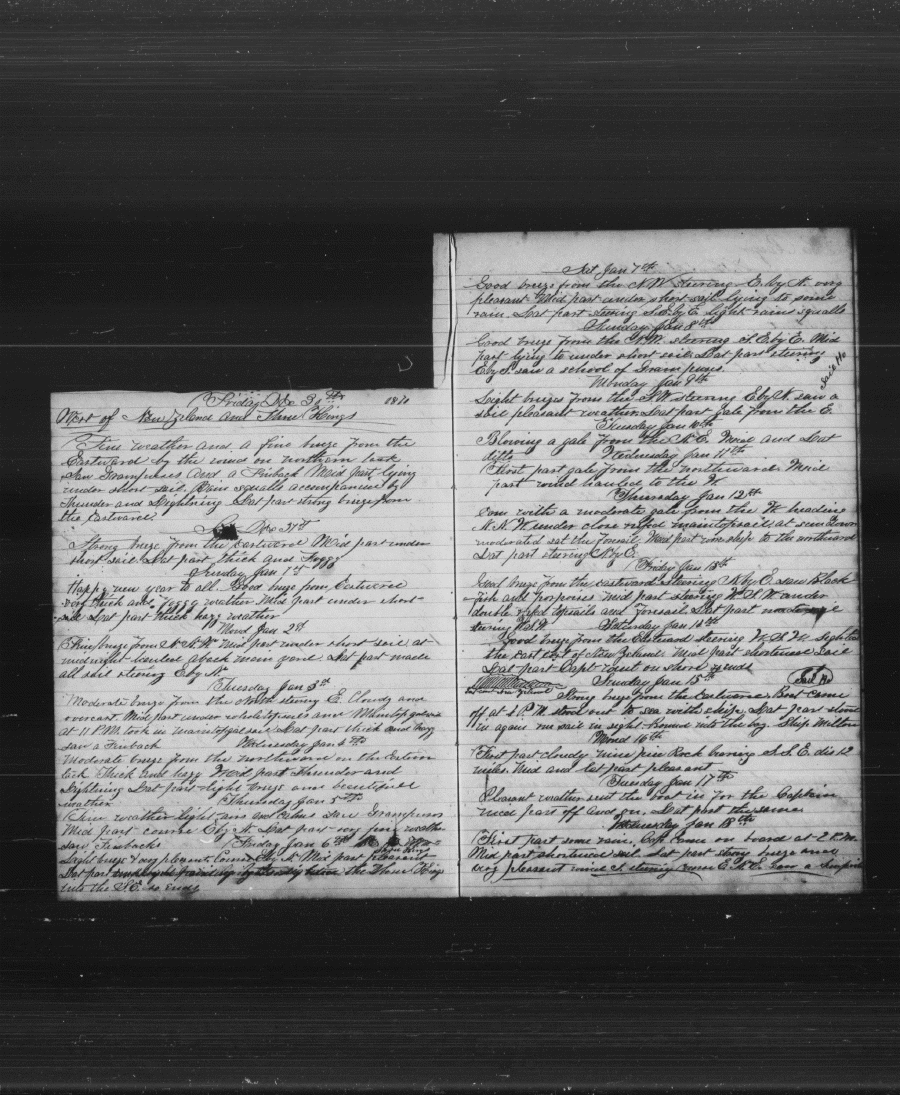 Friday Dec 30th 1870
West of New Zeland and Three Kings
Fine weather and a fine breze from the
Eastward by the wind on northern tack
Saw Grampuses and a Finback Mid part lying
under short sail. Rain squalls accompanied by
Thunder and Lightning Lat part strong breze from
the Eastward
Dec 31st
Strong breze from the Eastward Mid part under
short sail. Lat part thick and foggy
Sunday Jan 1st
Happy new year to all. Good breze from Eastward
very thick and foggy weather Mid part under short
sail Lat part thick hazy weather
Mond Jan 2d
Fine breze from N.N.W. Mid part under short sail at
midnight hauled aback main yard. Lat part made
all sail stering E by N
Tuesday Jan 3th
Moderate breze from the North stering E. Cloudy and
overcast. Mid part under and
at 11 P.M. took in Lat part thick and hazy
saw a Finback Wednesday Jan 4th
Moderate breze from the northward on the Eastern
tack Thick and hazy Mid part Thunder and
Lightning Lat part light brezes and beautifull
weather Thursday Jan 5th
Fine weather light airs and calms saw Grampuses
Mid part course E by N. Lat part very fine weather
saw Finbacks Friday Jan 6th
Light brezes & very pleasant course E by N Mid part pleasant
Lat part the Three Kings
into the S.E. so ends
Sat Jan 7th
Good breze from the N.W. steering E. by N. very
pleasant Mid part under short sail lying to some
rain. Lat part steering S.E. by E. light rain squalls
Sunday Jan 8th
Good breze from the N.W. steering S.E. by E. Mid
part lying to under short sail Lat part steering
E by S. saw a school of Grampuses
Sail Ho
Monday Jan 9th
Light brezes from the steering E by N. saw a
sail pleasant weather Lat part gale from the E.
Tuesday Jan 10th
Blowing a gale from the N.E. Mid and Lat
ditto Wednesday Jan 11th
First part gale from the northward Mid
part wind hauled to the W
Thursday Jan 12th
Com with a moderate gale from the W heading
N.N.W. under close reefed maintopsail at
moderated set the foresail Mid part wore ship to the northward
Lat part steering N by E.
Friday Jan 13th
Good breze from the Eastward steering N by E. saw Black
fish and porposes Mid part steering W.S.W. under
double reefed topsails and Foresail Lat part moderate
stering Saturday Jan 14th
Good breze from the Eastward steering W.S.W. sighted
the East cost of New Zeland. Mid part shortened Sail
Lat part Capt went on shore so ends
Sunday Jan 15th
Sail Ho
Strong breze from the Eastward. Boat came
off at P.M. stood out to sea with ship. Lat part stood
in again one sail in sight Ship Milton
Mond 16th
First part cloudy Rock baring S.S.E. dis 12
miles. Mid and lat part pleasant
Tuesday Jan 17th
Pleasant weather sent the boat in for the Captain
Mid part off and on. Lat part the same
Wednesday Jan 18th
First part some rain. Capt came on board at 2 P.M.
Mid part shortened sail. Lat part strong breze and
very pleasant wind S. steering E.N.E. saw a